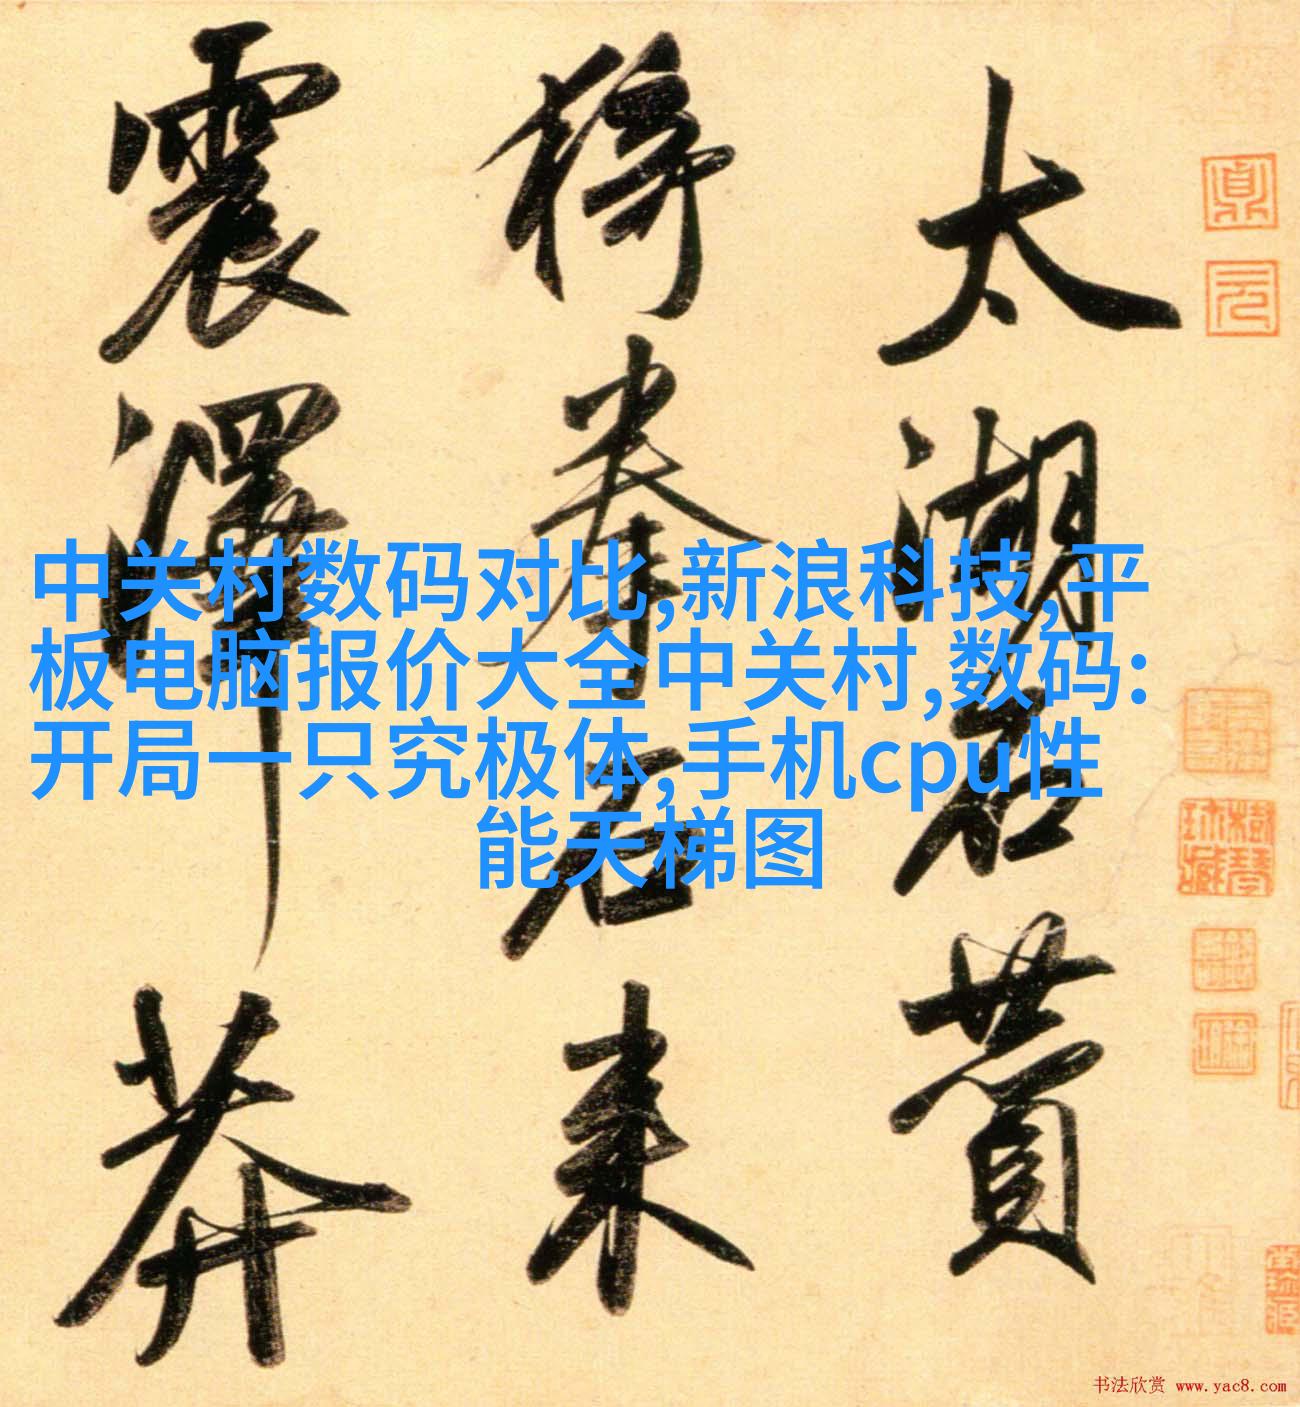 太湖石贊
猗拳石来
震澤莽
中关村数码对比,新浪科技,平
板电脑报价大全中关村,数码:
开局一只究极体,手机cpu性
能天梯图
书法欣赏 www.yac8.com